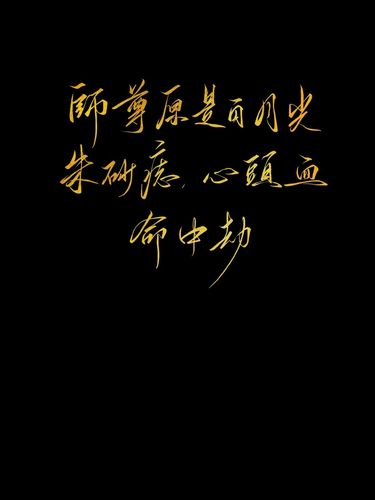 師尊原是白月光
朱砂痣,心頭血
命中劫